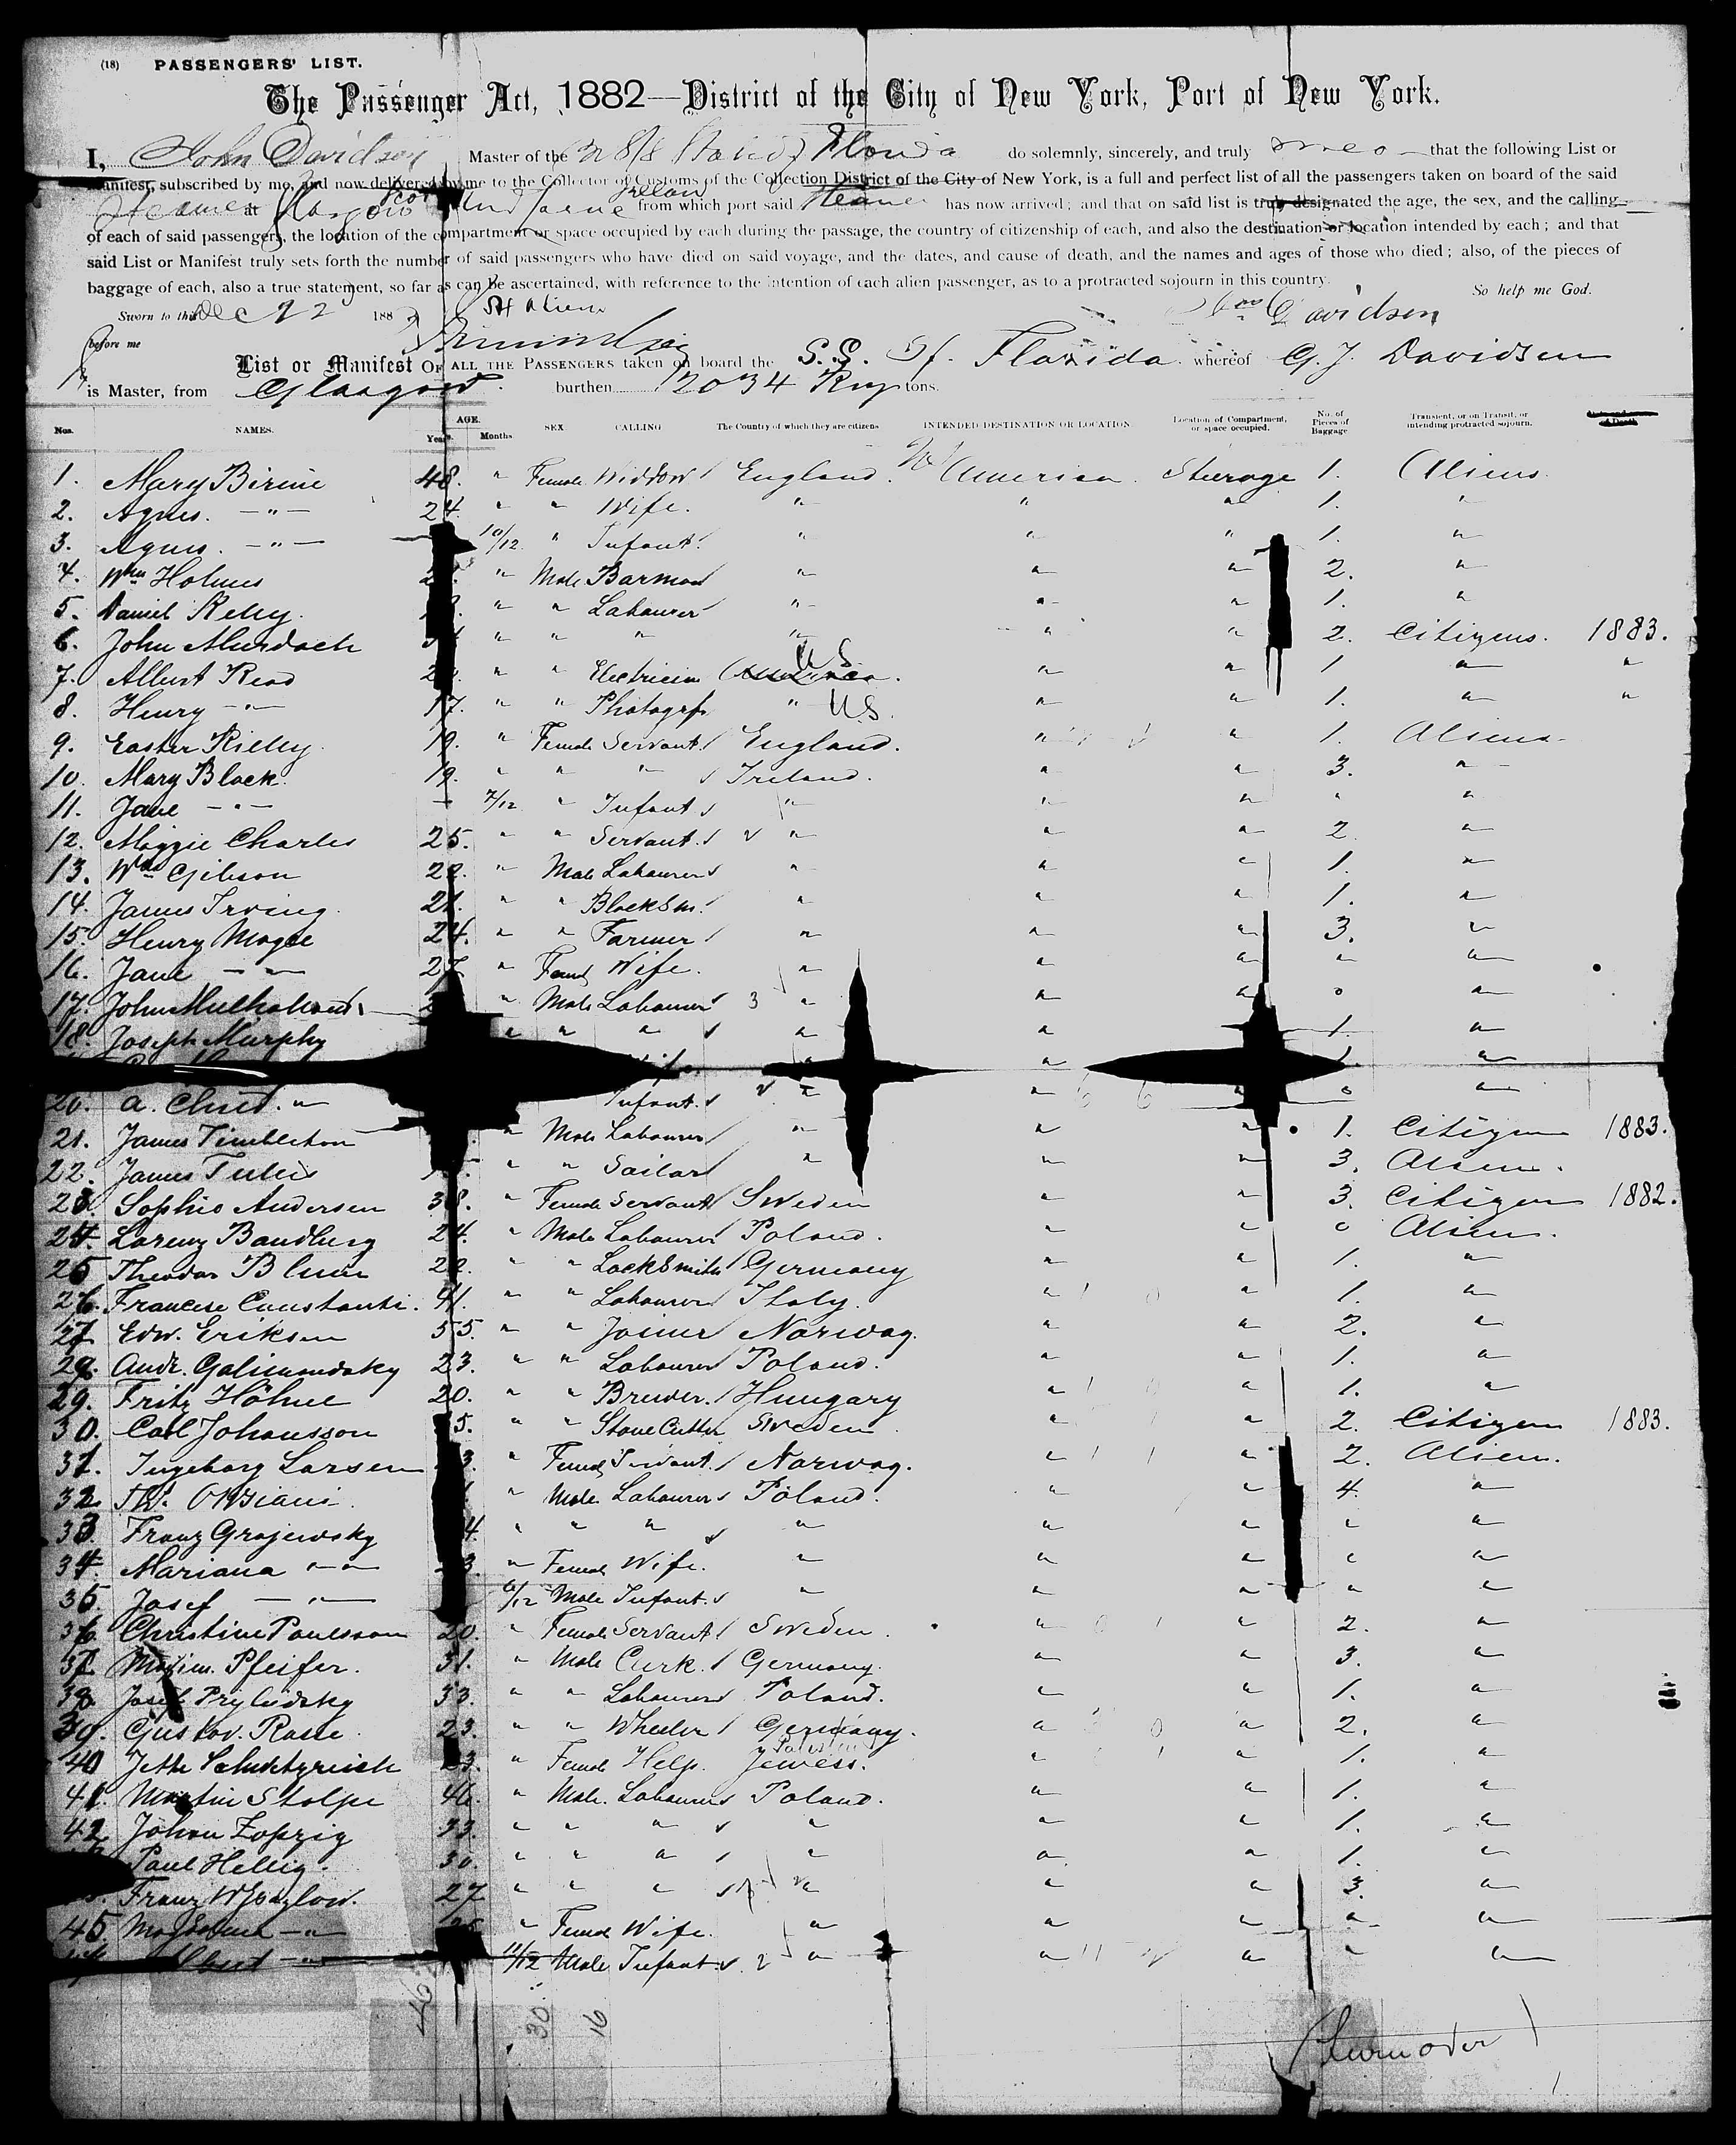 (18) PASSENGERS' LIST.
The Passenger Act, 1882—District of the City of New York, Port of New York.
I, John Davidson Master of the Florida do solemnly, sincerely, and truly that the following List or
Manifest, subscribed by me, and now delivered by me to the Collector of Customs of the Collection District of the City of New York, is a full and perfect list of all the passengers taken on board of the said
Steamer at Glasgow from which port said Steamer has now arrived; and that on said list is truly designated the age, the sex, and the calling
of each of said passengers, the location of the compartment or space occupied by each during the passage, the country of citizenship of each, and also the destination or location intended by each; and that
said List or Manifest truly sets forth the number of said passengers who have died on said voyage, and the dates, and cause of death, and the names and ages of those who died; also, of the pieces of
baggage of each, also a true statement, so far as can be ascertained, with reference to the intention of each alien passenger, as to a protracted sojourn in this country. So help me God.
Sworn to this Dec 188 Davidson
before me
List or Manifest OF ALL THE PASSENGERS taken on board the S.S. St. Florida whereof G. J. Davidson
is Master, from Glasgow burthen 2034 tons.
Nos. NAMES. AGE. Years. Months. SEX CALLING The Country of which they are citizens INTENDED DESTINATION OR LOCATION Location of Compartment, or space occupied. No. of Pieces of Baggage Transient, or on Transit, or intending protracted sojourn.
1. Mary Birnie 48. " Female Widdow England. America. Steerage 1. Aliens.
2. Agnes. —"— 24. " " Wife. " " " 1. "
3. Agnes. —"— 10/12 " Infant. " " " 1. "
4. Wm Holmes " Male Barman " " " 2. "
5. Daniel Reley. " " Labourer " " " 1. "
6. John Murdoch " " " " " " 2. Citizens. 1883.
7. Albert Read " " Electrician U S " " 1. " "
8. Henry —"— 17. " " Photogrf. " U.S. " " 1. " "
9. Easter Rielly. 19. " Female Servant England. " " 1. Aliens
10. Mary Black. 19. " " " Ireland. " " 3. "
11. Jane —"— — 7/12 " Infant " " " " "
12. Maggie Charles 25. " " Servant. " " " 2 "
13. Wm Gibson 22. " Male Labourer " " " 1. "
14. James Irving. 21. " " BlackSm. " " " 1. "
15. Henry Magee 24. " " Farmer " " " 3. "
16. Jane —"— " Female Wife. " " " " "
17. John Mulholland " Male Labourer 3 " " " " "
18. Joseph Murphy " " " " " 1. "
20. Infant. " " " " "
21. James Timbleton " Male Labourer " " " 1. Citizen 1883.
22. James " " Sailor " " " 3. Alien.
23. Sophie Andersen 38. " Female Servant Sweden " " 3. Citizen 1882.
24. Lorenz Bandburg 24. " Male Labourer Poland. " " " Alien.
25 Theodor Blum 22. " " LockSmith Germany " " 1. "
26. Francese Constanti. 41. " " Labourer Italy. " " 1. "
27. Edw. Eriksen 55. " " Joiner Norway. " " 2. "
28. Andr. Galimondsky 23. " " Labourer Poland. " " 1. "
29. Fritz Höhne 20. " " Brewer. Hungary " " 1. "
30. Carl Johansson 5. " " Stone Cutter Sweden " " 2. Citizen 1883.
31. Ingeborg Larsen 3. " Female Servant. Norway. " " 2. Alien.
32 " Male Labourer Poland. " " 4. "
33. Franz Grajewsky 4. " " " " " " " "
34. Mariana —"— 3. " Female Wife. " " " " "
35. Josef —"— 6/12 Male Infant. " " " " "
36. Christine Poulsson 20. " Female Servant Sweden. " " 2. "
37. Maxim. Pfeifer. 31. " Male Clerk. Germany. " " 3. "
38. Josef Prylidsky 53. " " Labourer Poland. " " 1. "
39. Gustav. Rasse. 23. " " Wheeler Germany. " " 2. "
40 Jette 23. " Female Help. Jewess. " " 1. "
41. Martin Stolpe 46. " Male. Labourer Poland. " " 1. "
42. Johan Zopzig 33. " " " " " " 1. "
Paul Hellig. 30. " " " " " " 1. "
Franz 27 " " " " " " 3. "
45. —"— 26 " Female Wife. " " " " "
—"— 11/12 Male Infant. " " " " "
46
30
16
(Turn over)